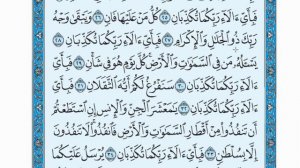 فَبِأَيِّ ءَالَآءِ رَبِّكُمَا تُكَذِّبَانِ ﴿٢٥﴾ كُلُّ مَنْ عَلَيْهَا فَانٍ ﴿٢٦﴾ وَيَبْقَىٰ وَجْهُ
رَبِّكَ ذُو الْجَلَالِ وَالْإِكْرَامِ ﴿٢٧﴾ فَبِأَيِّ ءَالَآءِ رَبِّكُمَا تُكَذِّبَانِ ﴿٢٨﴾
يَسْـَٔلُهُ مَن فِي السَّمَٰوَٰتِ وَالْأَرْضِ كُلَّ يَوْمٍ هُوَ فِي شَأْنٍ ﴿٢٩﴾ فَبِأَيِّ
ءَالَآءِ رَبِّكُمَا تُكَذِّبَانِ ﴿٣٠﴾ سَنَفْرُغُ لَكُمْ أَيُّهَ الثَّقَلَانِ ﴿٣١﴾ فَبِأَيِّ
ءَالَآءِ رَبِّكُمَا تُكَذِّبَانِ ﴿٣٢﴾ يَٰمَعْشَرَ الْجِنِّ وَالْإِنسِ إِنِ اسْتَطَعْتُمْ
أَن تَنفُذُوا مِنْ أَقْطَارِ السَّمَٰوَٰتِ وَالْأَرْضِ فَانفُذُوا لَا تَنفُذُونَ
إِلَّا بِسُلْطَٰنٍ ﴿٣٣﴾ فَبِأَيِّ ءَالَآءِ رَبِّكُمَا تُكَذِّبَانِ ﴿٣٤﴾ يُرْسَلُ عَلَيْكُمَا